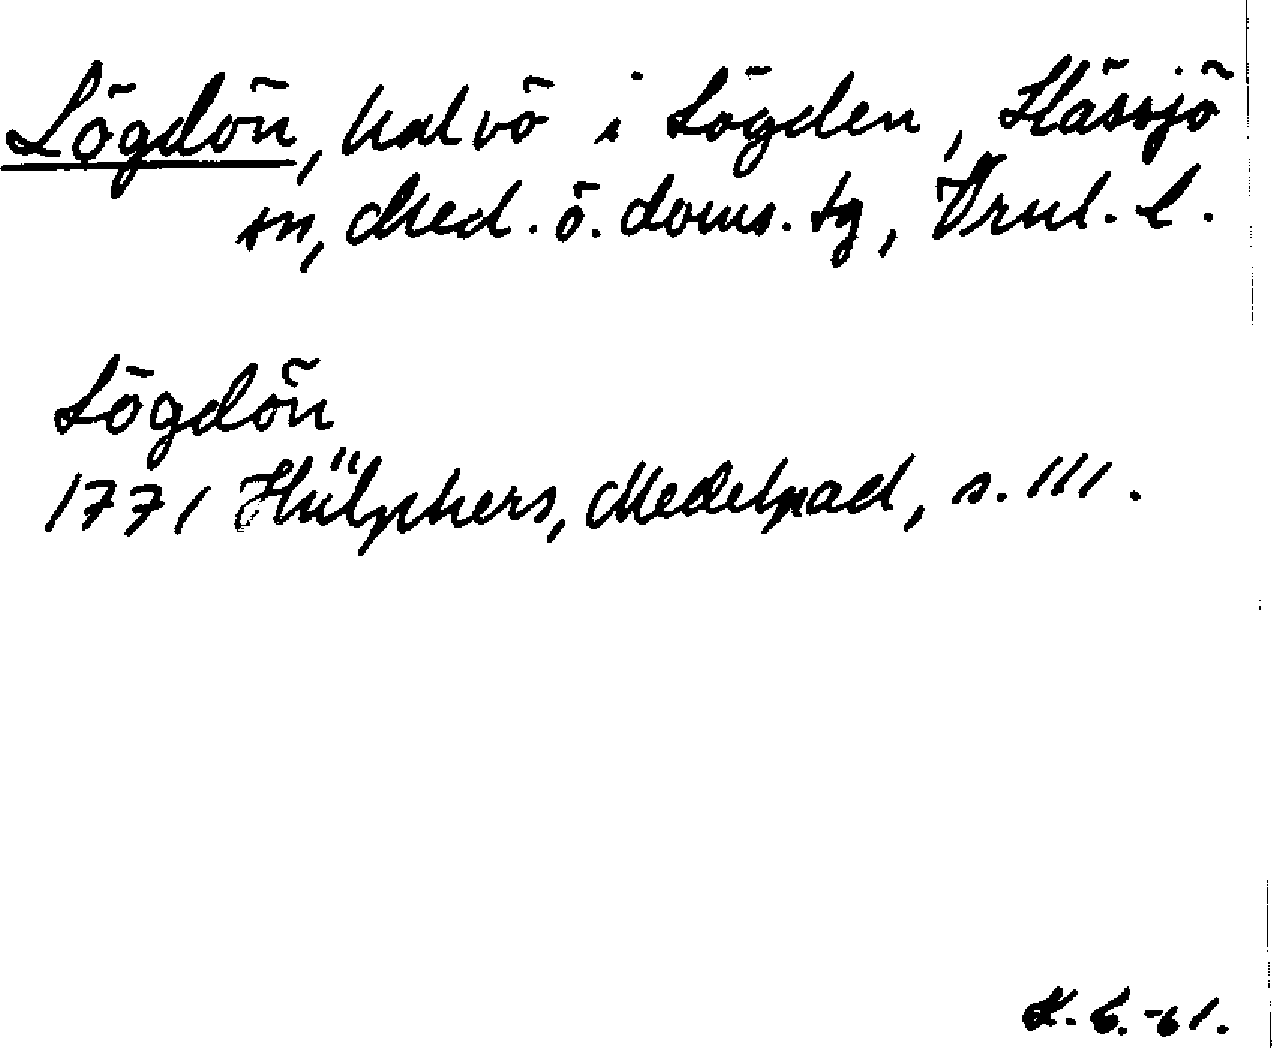 Lögdön, halvö i Lögden, Hässjö
sn, Med. ö. doms. tg, Vrnl. l.
Lögdön
1771 Hülphers, Medelpad, s. 111.
K. G. -61.